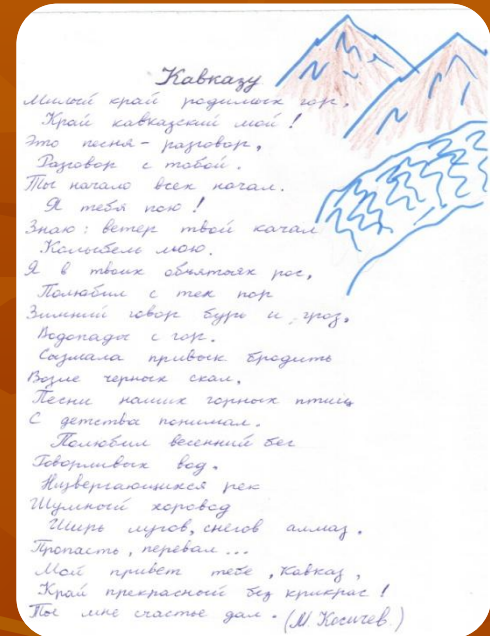 Кавказу
Милый край родимых гор,
Край кавказский мой!
Это песня - разговор,
Разговор с тобой.
Ты начало всех начал.
Я тебя пою!
Знаю: ветер твой качал
Колыбель мою.
Я в твоих объятьях рос,
Полюбил с тех пор
Зимний говор бурь и гроз,
Водопады с гор.
Сызмала привык бродить
Возле черных скал,
Песни наших горных птиц
С детства понимал.
Полюбил весенний бег
Говорливых вод.
Низвергающихся рек
Шумной хоровод
Ширь лугов, снегов алмаз,
Пропасть, перевал...
Мой привет тебе, Кавказ,
Край прекрасный без прикрас!
Ты мне счастье дал. (М. Косичев.)